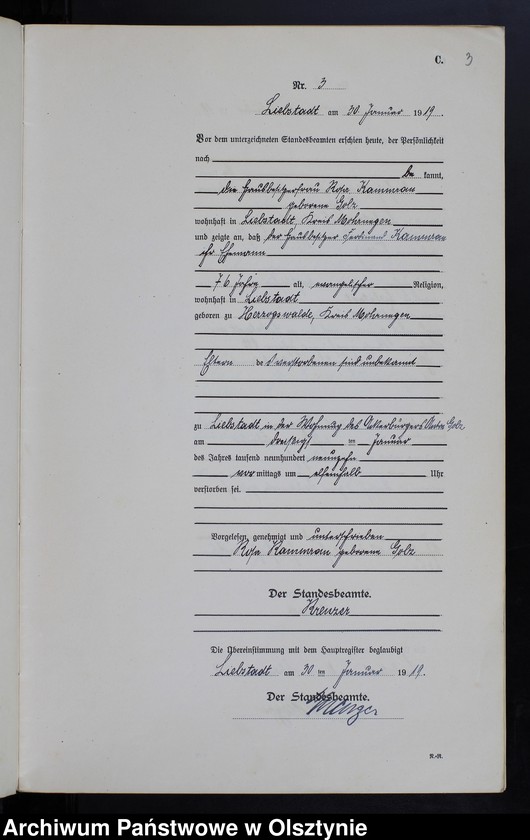 C. 3
Nr. 3
Liebstadt am 30 Januar 1919.
Vor dem unterzeichneten Standesbeamten erschien heute, der Persönlichkeit
nach
be kannt,
die Hausbesitzerfrau Rosa Kammrau
geborene Golz
wohnhaft in Liebstadt, Kreis Mohrungen
und zeigte an, daß der Hausbesitzer Ferdinand Kammrau
ihr Ehemann
76 Jahre alt, evangelischer Religion,
wohnhaft in Liebstadt
geboren zu Herzogswalde, Kreis Mohrungen
Eltern des Verstorbenen sind unbekannt
zu Liebstadt in der Wohnung des Golz
am dreißigsten Januar
des Jahres tausend neunhundert neunzehn
vor mittags um Uhr
verstorben sei.
Vorgelesen, genehmigt und unterschrieben
Rosa Kammrau geborene Golz
Der Standesbeamte.
Die Übereinstimmung mit dem Hauptregister beglaubigt
Liebstadt am 30 ten Januar 1919.
Der Standesbeamte.
R.-R.
Archiwum Państwowe w Olsztynie